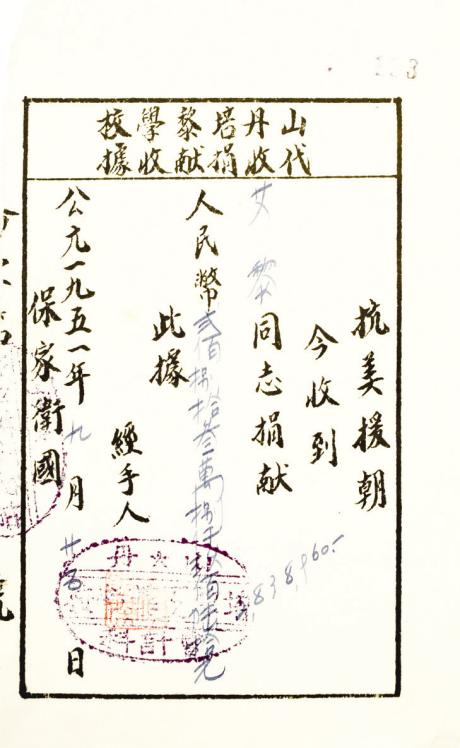 山丹培黎學校
代收捐献收據
抗美援朝
今收到
艾黎同志捐献
人民幣弍佰捌拾叁萬捌仟玖佰陸拾元
,838,960.-
此據
經手人
公元一九五一年九月廿五日
保家衛國